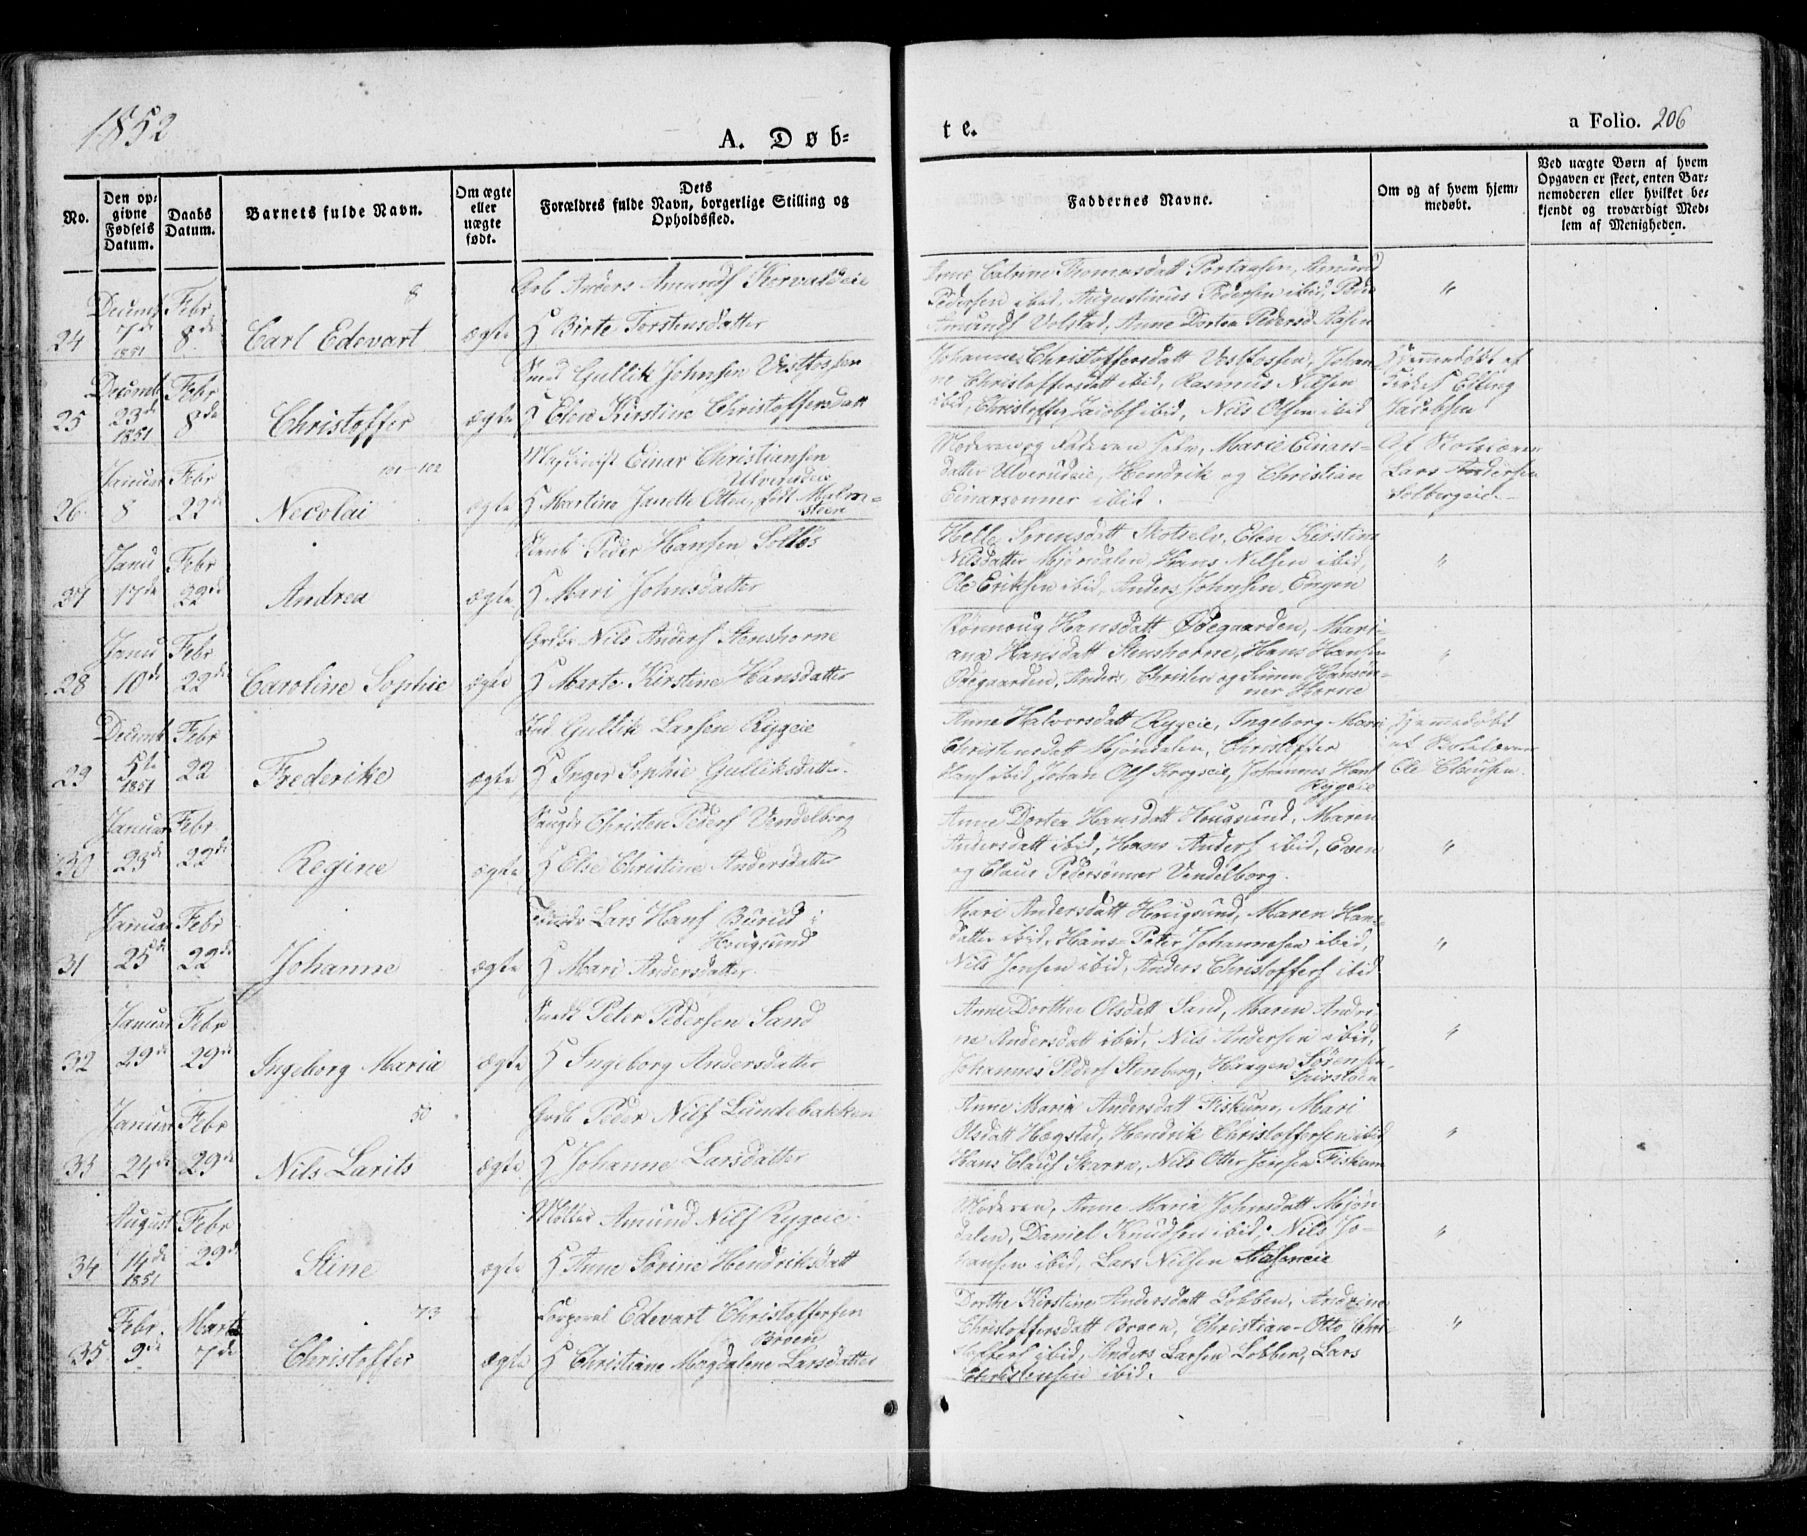 1852
A. Døb-
te.
a Folio. 206
No.
Den op-
givne
Fødsels
Datum.
Daabs
Datum.
Barnets fulde Navn.
Om ægte
eller
uægte
født.
Dets
Forældres fulde Navn, borgerlige Stilling og
Opholdssted.
Faddernes Navne.
Om og af hvem hjem-
medøbt.
Ved uægte Børn af hvem
Opgaven er skeet, enten Bar-
nemoderen eller hvilket be-
kjendt og troværdigt Med-
lem af Menigheden.
24
Decemb
7de
1851
Febr
8de
8
Carl Edevart
ægte
Anders Amunds Korvaldeie
H Birte Torstensdatter
Catrine Thomasdatt Portaasen, Amund
Pedersen ibid, Augustinus Pedersen ibid, Peder
Amunds Volstad, Anne Dortea Pedersd Aasen
"
25
Decemb
23de
1851
Febr
8de
Christoffer
ægte
Gullik Johnsen Vestfossen
H Elen Kirstine Christoffersdatt
Johanne Christoffersdatt Vestfossen, Johan-
ne Christoffersdatt ibid, Rasmus Nilsen
ibid, Christoffer Jacobs ibid, Nils Olsen ibid
Hjemmedøbt af
Kirkes Elling
Jacobsen
26
Januar
8
Febr
22de
101-102
Necolai
ægte
Einar Christiansen
Ulverudeie
H Martine Janette Ottea, født Malm-
steen
Moderen og Faderen selv, Marie Einars-
datter Ulverudeie, Hendrik og Christian
Einarsønner ibid.
Af Skolelæren
Lars Andersen
Solbergeie
27
Janu
17de
Febr
22de
Andrea
ægte
Peder Hansen Solløs
H Mari Johnsdatter
Helle Sørensdatt Skotselv, Elen Kirstine
Nilsdatter Mjøndalen, Hans Nilsen ibid,
Ole Eriksen ibid, Anders Johnsen Engen
"
28
Janu
10de
Febr
22de
Caroline Sophie
ægte
Nils Anders Stenshorne
H Marte Kirstine Hansdatter
Rønnaug Hansdatt Ødegaarden, Mari-
ana Hansdatt Stenshorne, Hans Hansen
Ødegaarden, Anders Christen og Simen Hansøn-
ner Horne
"
29
Decemb
5te
1851
Febr
22
Frederike
ægte
Ind Gullik Larsen Rygeie
H Inger Sophie Gulliksdatter
Anne Halvorsdatt Rygeie, Ingeborg Mari
Christensdatt Mjøndalen, Christoffer
Hans ibid, Johan Ols Krogseie, Johannes Hans
Rygeie
Hjemmedøbt
af Skolelæren
Ole Clausen.
30
Januar
23de
Febr
22de
Regine
ægte
Christen Peders Vendelborg
H Else Christine Andersdatter
Anne Dortea Hansdatt Hougsund, Maren
Andersdatt ibid, Hans Anders ibid, Even
og Claus Pedersønner Vendelborg.
"
31
Januar
25de
Febr
22de
Johanne
ægte
Lars Hans Burud i
Hougsund
H Mari Andersdatter
Mari Andersdatt Hougsund, Maren Hans-
datter ibid, Hans Peter Johannesen ibid,
Nils Jensen ibid, Anders Christoffers ibid
"
32
Januar
29de
Febr
29de
Ingeborg Maria
ægte
Peter Pedersen Sand
H Ingeborg Andersdatter
Anne Dorthea Olsdatt Sand, Maren Andri-
ne Andersdatt ibid, Nils Andersen ibid,
Johannes Peders Stenberg, Haagen Sørensen
"
33
Januar
24de
Febr
29de
50
Nils Larits
ægte
Peder Nils Lundebakken
H Johanne Larsdatter
Anne Maria Andersdatt Fiskum, Mari
Olsdatt Hægstad, Hendrik Christoffersen ibid
Hans Claus Skarra, Nils Otter Jensen Fiskum
"
34
August
14de
1851
Febr
29de
Stine
ægte
Møller Amund Nils Rygeie
H Anne Sørine Hendriksdatt
Moderen, Anne Maria Johnsdatt Mjøn-
dalen, Daniel Knudsen ibid, Nils Jo-
hansen ibid, Lars Nilsen Aaseneie
"
35
Febr.
9de
Marts
7de
73
Christoffer
ægte
Corporal Edevart Christoffersen
Broen
H Christiane Magdalene Larsdatter
Dorthe Kirstine Andersdatt Lobben, Andrine
Christoffersdatt Broen, Christian Otto Chri-
stoffers ibid, Anders Larsen Lobben, Lars
Christensen ibid.
"